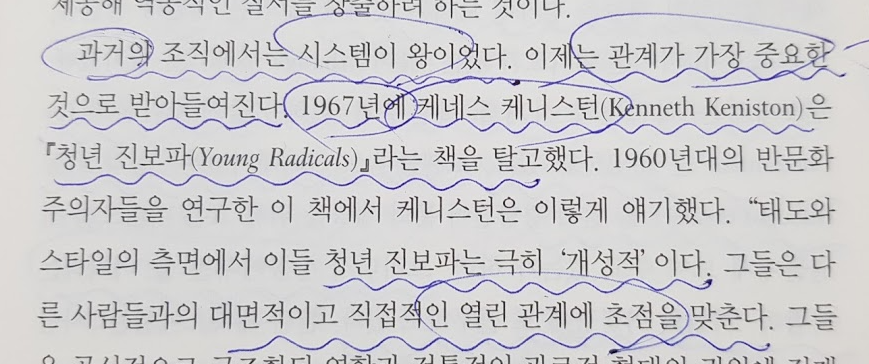 제공해 역동적인 질서를 창출하려 하는 것이다.
과거의 조직에서는 시스템이 왕이었다. 이제는 관계가 가장 중요한
것으로 받아들여진다. 1967년에 케네스 케니스턴(Kenneth Keniston)은
『청년 진보파(Young Radicals)』라는 책을 탈고했다. 1960년대의 반문화
주의자들을 연구한 이 책에서 케니스턴은 이렇게 얘기했다. “태도와
스타일의 측면에서 이들 청년 진보파는 극히 ‘개성적’이다. 그들은 다
른 사람들과의 대면적이고 직접적인 열린 관계에 초점을 맞춘다. 그들